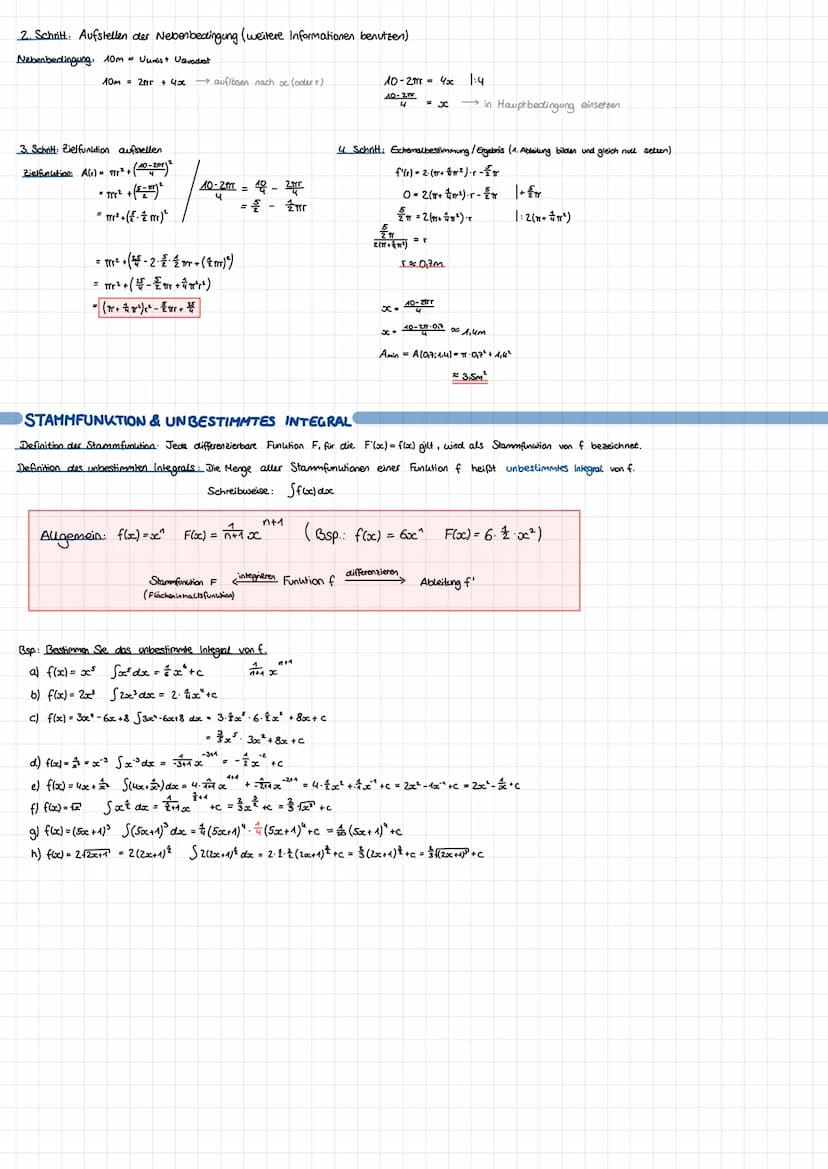 2. Schritt: Aufstellen der Nebenbedingung (weitere Informationen benutzen)
Nebenbedingung: 10m = UKreis + UQuadrat
10m = 2πr + 4x → auflösen nach x (oder r)
10 - 2πr = 4x |:4
(10-2πr)/4 = x → in Hauptbedingung einsetzen
3. Schritt: Zielfunktion aufstellen
Zielfunktion: A(r) = πr² + ((10-2πr)/4)²
= πr² + ((5-πr)/2)²
= πr² + (5/2 - 1/2 πr)²
(10-2πr)/4 = 10/4 - 2πr/4
= 5/2 - 1/2 πr
= πr² + (25/4 - 2·5/2·1/2 πr + (1/2 πr)²)
= πr² + (25/4 - 5/2 πr + 1/4 π²r²)
= (π + 1/4 π²)r² - 5/2 πr + 25/4
4. Schritt: Extremalbestimmung / Ergebnis (1. Ableitung bilden und gleich null setzen)
f'(r) = 2·(π + 1/4 π²)·r - 5/2 π
0 = 2(π + 1/4 π²)·r - 5/2 π |+ 5/2 π
5/2 π = 2(π + 1/4 π²)·r |: 2(π + 1/4 π²)
(5/2 π)/(2(π + 1/4 π²)) = r
r ≈ 0,7m
x = (10-2πr)/4
x = (10-2π·0,7)/4 ≈ 1,4m
Amin = A(0,7;1,4) = π·0,7² + 1,4²
≈ 3,5m²
STAMMFUNKTION & UNBESTIMMTES INTEGRAL
Definition der Stammfunktion: Jede differenzierbare Funktion F, für die F'(x) = f(x) gilt, wird als Stammfunktion von f bezeichnet.
Definition des unbestimmten Integrals: Die Menge aller Stammfunktionen einer Funktion f heißt unbestimmtes Integral von f.
Schreibweise: ∫f(x) dx
Allgemein: f(x) = xⁿ F(x) = 1/(n+1) x^(n+1) (Bsp.: f(x) = 6x¹ F(x) = 6 · 1/2 · x²)
Stammfunktion F ←integrieren Funktion f differenzieren→ Ableitung f'
(Flächeninhaltsfunktion)
Bsp.: Bestimmen Sie das unbestimmte Integral von f.
a) f(x) = x⁵ ∫x⁵ dx = 1/6 x⁶ + c 1/(n+1) x^(n+1)
b) f(x) = 2x³ ∫2x³ dx = 2 · 1/4 x⁴ + c
c) f(x) = 3x⁴ - 6x + 8 ∫3x⁴ - 6x + 8 dx = 3 · 1/5 x⁵ - 6 · 1/2 x² + 8x + c
= 3/5 x⁵ - 3x² + 8x + c
d) f(x) = 1/x³ = x⁻³ ∫x⁻³ dx = 1/(-3+1) x^(-3+1) = -1/2 x⁻² + c
e) f(x) = 4x + 1/x² ∫(4x + 1/x²) dx = 4 · 1/(1+1) x^(1+1) + 1/(-2+1) x^(-2+1) = 4 · 1/2 x² + 1/-1 x⁻¹ + c = 2x² - 1x⁻¹ + c = 2x² - 1/x + c
f) f(x) = √x ∫x^(1/2) dx = 1/(1/2+1) x^(1/2+1) + c = 2/3 x^(3/2) + c = 2/3 √x³ + c
g) f(x) = (5x+1)³ ∫(5x+1)³ dx = 1/4 (5x+1)⁴ · 1/4 (5x+1)⁴ + c = 1/20 (5x+1)⁴ + c